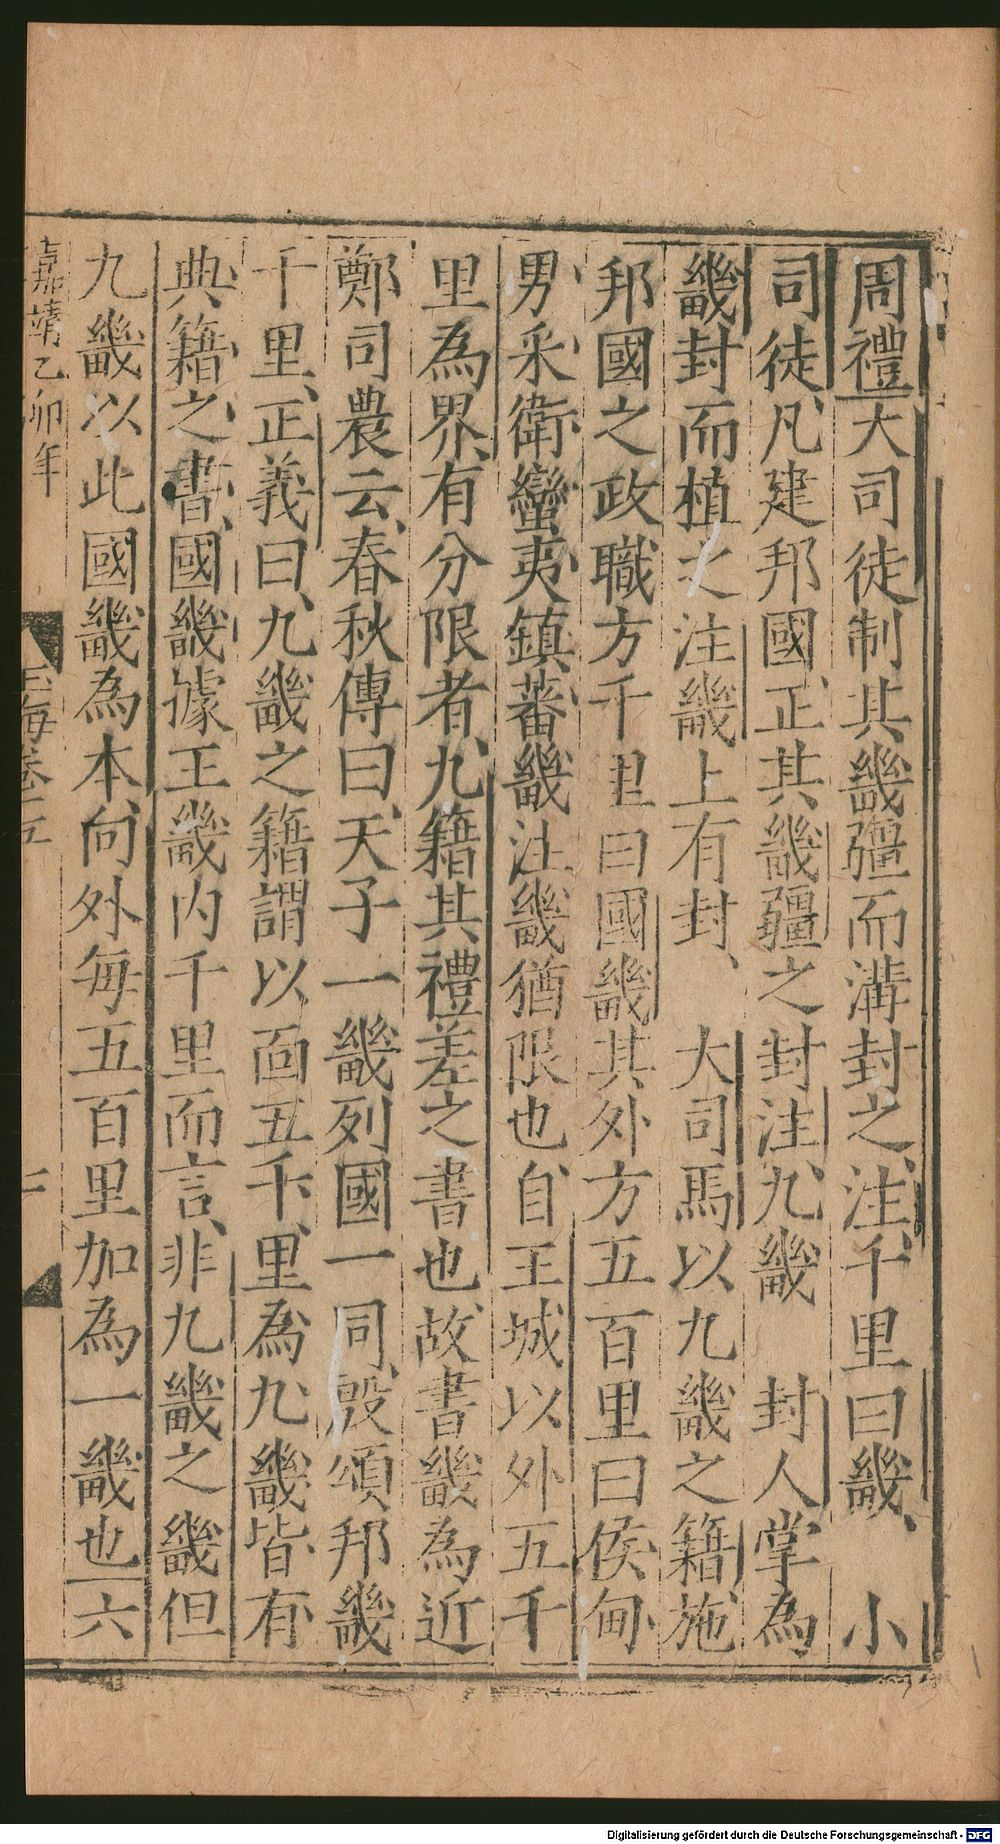 周禮大司徒制其畿疆而溝封之注千里曰畿、 小
司徒凡建邦國、正其畿疆之封注、九畿 封人掌為
畿封而植之注畿上有封、 大司馬以九畿之籍施
邦國之政職方千里曰國畿其外方五百里曰侯甸
男采衛蠻夷鎮蕃畿注畿猶限也自王城以外五千
里為界、有分限者、九籍其禮差之書也故書畿為近
鄭司農云、春秋傳曰、天子一畿列國一同、殷頌邦畿
千里、正義曰、九畿之籍謂以面五千、里為九畿皆有
典籍之書、國畿據王畿內千里而言、非九畿之畿但
九畿以此國畿為本、向外每五百里加為一畿也六
嘉靖乙卯年 玉海卷 五
Digitalisierung gefördert durch die Deutsche Forschungsgemeinschaft - DFG